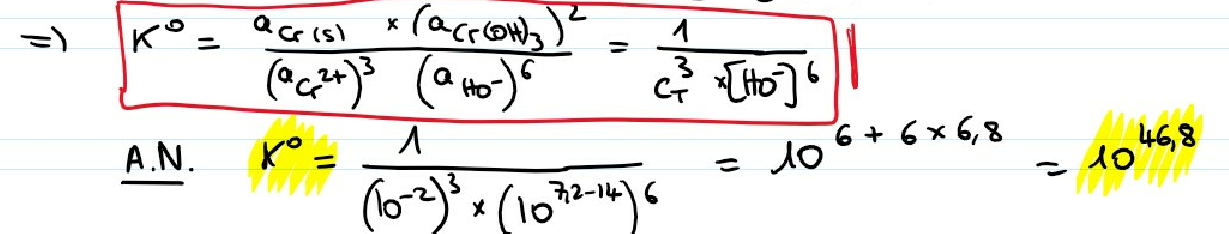 => K° = a_Cr(s) × (a_Cr(OH)₃)² / (a_Cr²⁺)³ (a_HO⁻)⁶ = 1 / C_T³ × [HO⁻]⁶
A.N. K° = 1 / (10⁻²)³ × (10^7,2-14)⁶ = 10^6 + 6 × 6,8 = 10^46,8